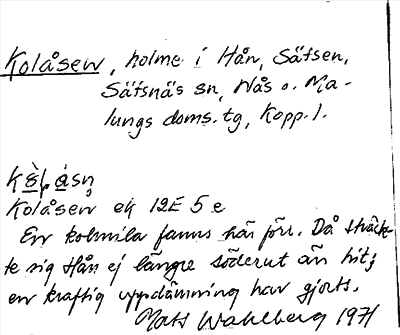 Kolåsen, holme i Hån, Säfsen,
Säfsnäs sn, Nås o. Ma-
lungs doms.tg, Kopp. l.
Kolåsen ek 12E 5e
En kolmila fanns här förr. Då sträck-
te sig Hån ej längre söderut än hit;
en kraftig uppdämning har gjorts.
Mats Wahlberg 1971